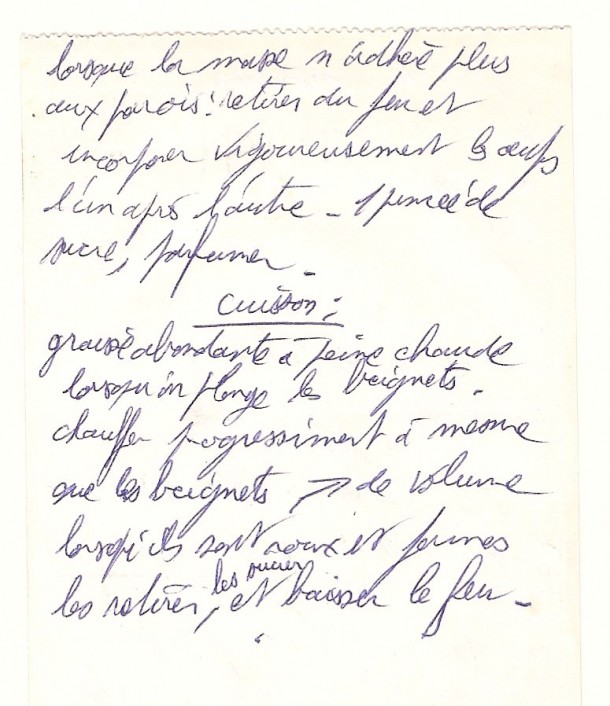 lorsque la masse n'adhère plus
aux parois : retirer du feu et
incorporer vigoureusement les œufs
l'un après l'autre - 1 pincée de
sucre, parfumer -
Cuisson :
graisse abondante à peine chaude
lorsqu'on plonge les beignets -
chauffer progressiment à mesure
que les beignets ↗ de volume
lorsqu'ils sont roux et fermes
les retirer, les sucrer et baisser le feu -